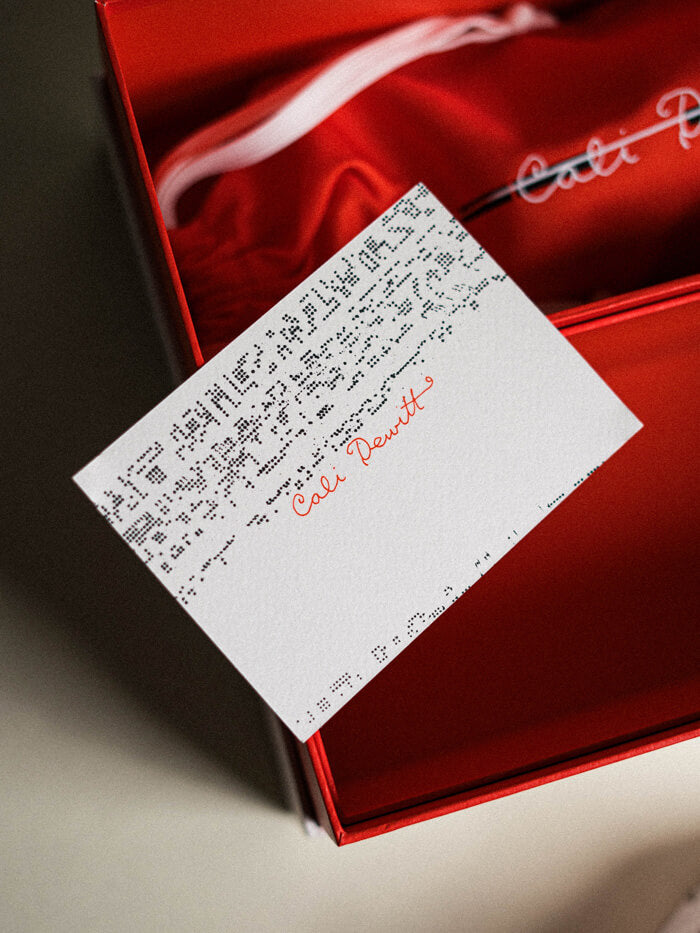 Cali D
Cali Dewitt